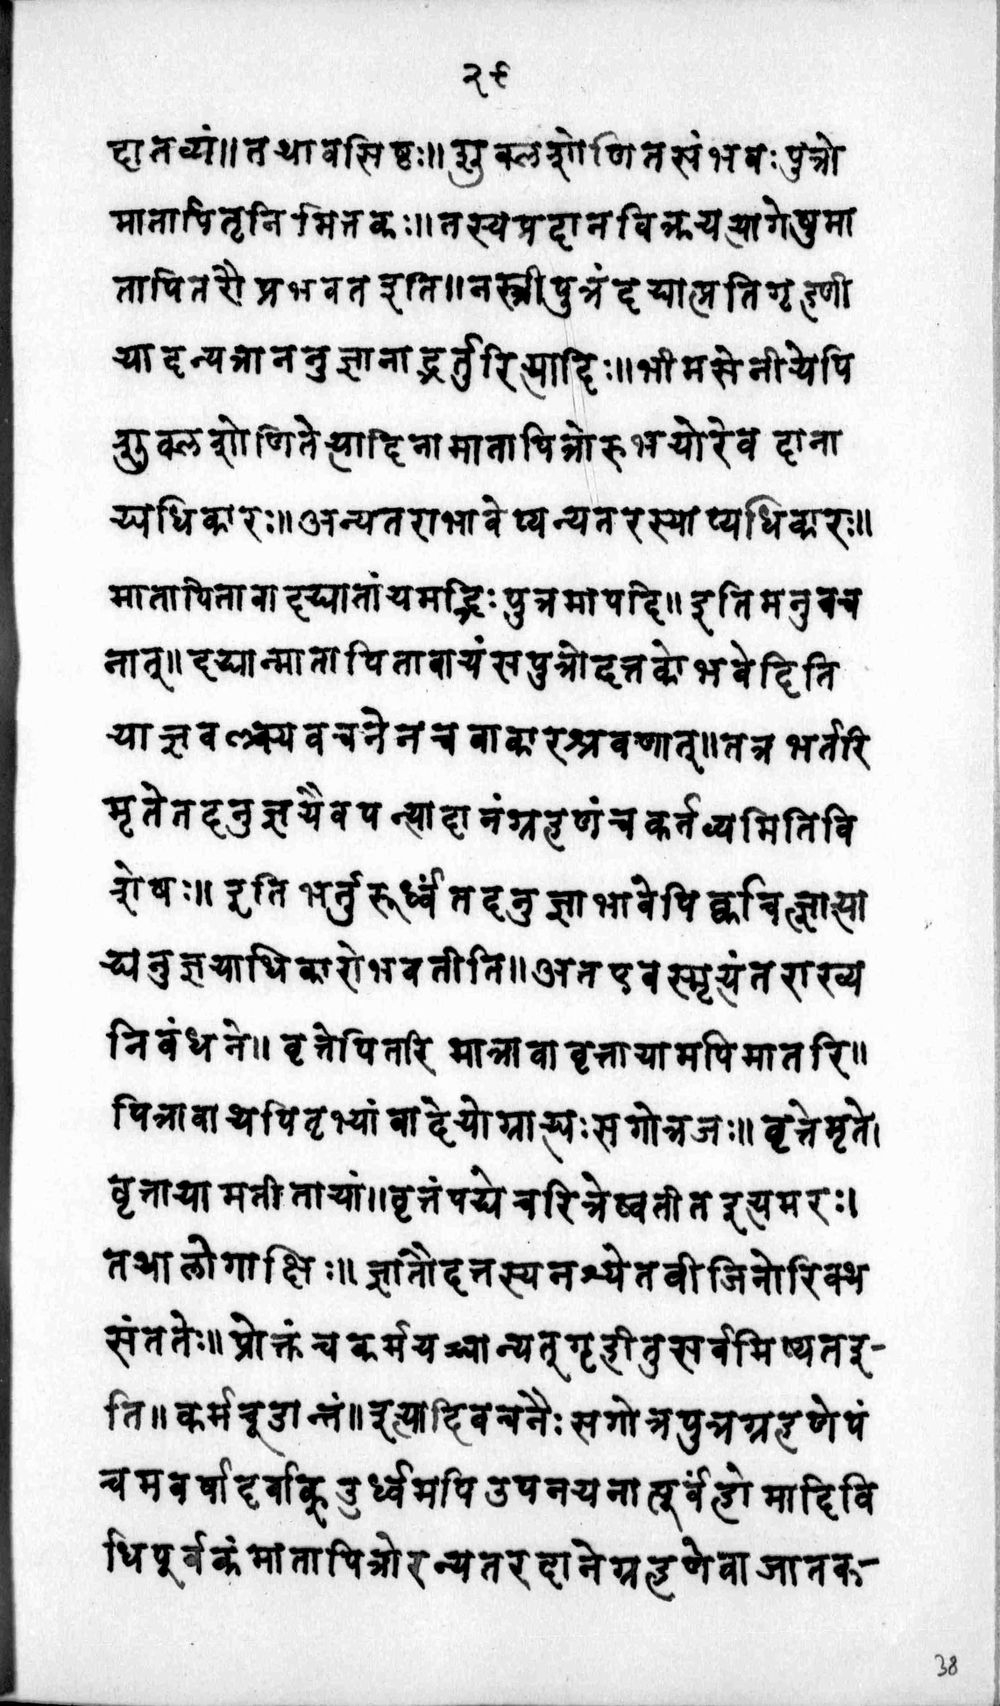 २९
दातव्यं॥तथावसिष्ठः॥शुक्लशोणितसंभवःपुत्रो
मातापितृनिमित्तकः॥तस्यप्रदानविक्रयत्यागेषुमा
तापितरौप्रभवतइति॥नस्त्रीपुत्रंदद्यात्प्रतिगृह्णी
यादन्यत्राननुज्ञानाद्भर्तुरित्यादिः॥भीमसेनीयेपि
शुक्लशोणितेत्यादिनामातापित्रोरुभयोरेव दाना
द्यधिकारः॥अन्यतराभावेप्यन्यतरस्याप्यधिकारः॥
मातापितावादद्यातांयमद्भिःपुत्रमापदि॥इतिमनुवच
नात्॥दद्यान्मातापितावायंसपुत्रोदत्तकोभवेदिति
याज्ञवल्क्यवचनेनचवाकारश्रवणात्॥तत्र भर्तरि
मृतेतदनुज्ञयैवपत्न्यादानंग्रहणंचकर्तव्यमितिवि
शेषः॥इति भर्तुरूर्ध्वंतदनुज्ञाभावेपिक्वचित्ज्ञात्या
द्यनुज्ञयाधिकारोभवतीति॥अतएवस्मृत्यंतराख्य
निबंधने॥वृत्तेपितरि मात्रावावृत्तायामपिमातरि॥
पित्रावाथपितृभ्यांवादेयोग्राह्यःसगोत्रजः॥वृत्तेमृते।
वृत्तायामतीतायां॥वृत्तंपद्येचरित्रेष्वतीतइत्यमरः।
तथालोगाक्षिः॥ज्ञातौदत्तस्यनश्येतबीजिनोरिक्थ
संततेः॥प्रोक्तंचकर्मयच्चान्यत्गृहीतुसर्वमिष्यतइ-
ति॥कर्मचूडान्तं॥इत्यादिवचनैःसगोत्रपुत्रग्रहणेपं
चमवर्षादर्वाक्उर्ध्वमपिउपनयनात्पूर्वंहोमादिवि
धिपूर्वकंमातापित्रोरन्यतरदानेग्रहणेवाजातक-
38